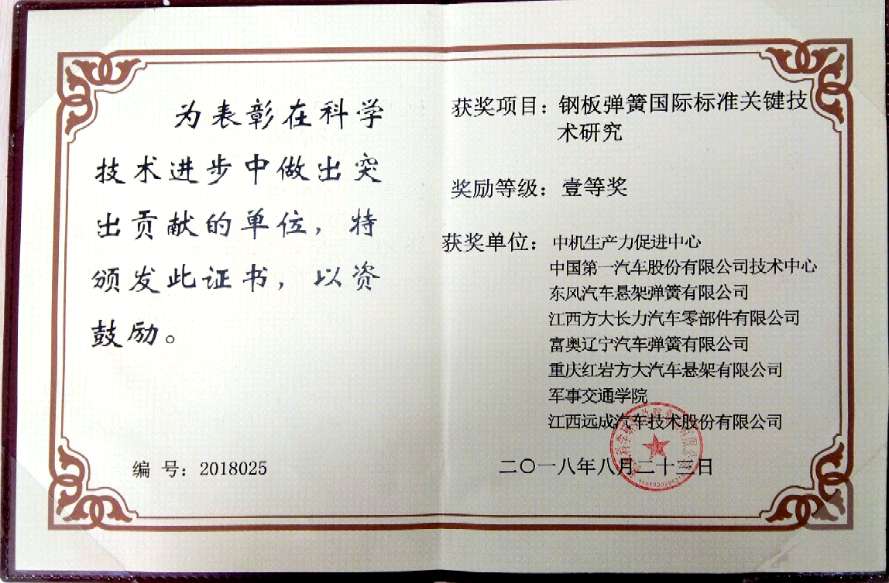 为表彰在科学
技术进步中做出突
出贡献的单位，特
颁发此证书，以资
鼓励。
编 号：2018025
获奖项目：钢板弹簧国际标准关键技
术研究
奖励等级：壹等奖
获奖单位：中机生产力促进中心
中国第一汽车股份有限公司技术中心
东风汽车悬架弹簧有限公司
江西方大长力汽车零部件有限公司
富奥辽宁汽车弹簧有限公司
重庆红岩方大汽车悬架有限公司
军事交通学院
江西远成汽车技术股份有限公司
二〇一八年八月二十三日